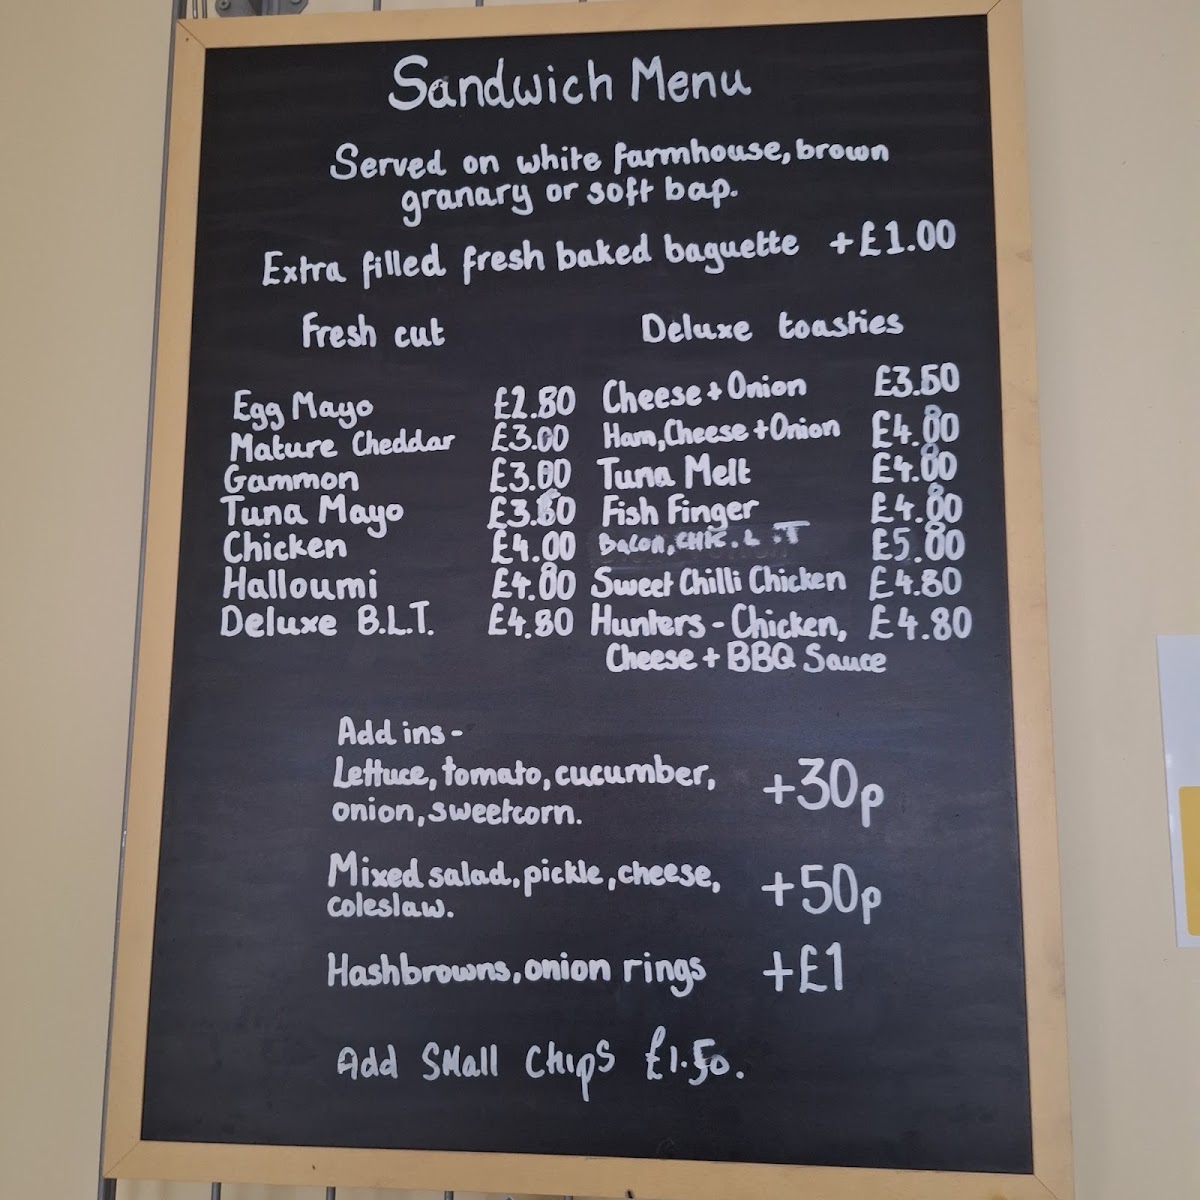 Sandwich Menu
Served on white farmhouse, brown
granary or soft bap.
Extra filled fresh baked baguette +£1.00
Fresh cut
Egg Mayo £2.80
Mature Cheddar £3.00
Gammon
Tuna Mayo
Chicken £4.00
Halloumi
Deluxe B.L.T. £4.80
Deluxe toasties
Cheese + Onion £3.50
Ham, Cheese + Onion £4.80
Tuna Melt £4.80
Fish Finger £4.80
Bacon, CHIC. L T £5.80
Sweet Chilli Chicken £4.80
Hunters - Chicken, £4.80
Cheese + BBQ Sauce
Add ins -
Lettuce, tomato, cucumber,
onion, sweetcorn. +30p
Mixed salad, pickle, cheese,
coleslaw. +50p
Hashbrowns, onion rings +£1
Add Small Chips £1.50.